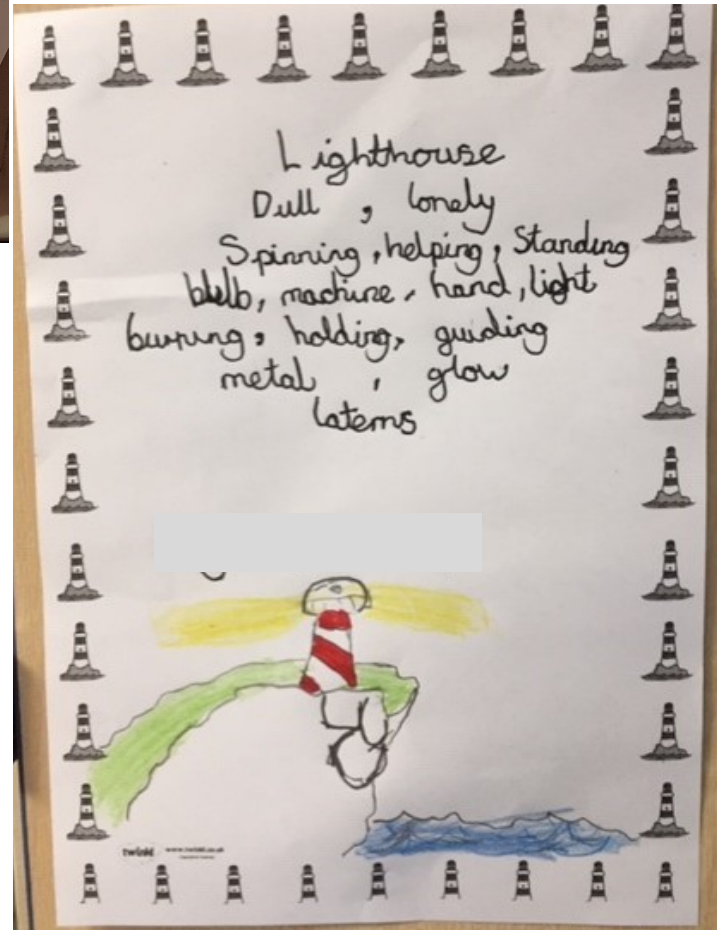 Lighthouse
Dull , lonely
Spinning, helping, Standing
bulb, machine, hand, light
burning, holding, guiding
metal , glow
laterns
twinkl www.twinkl.co.uk